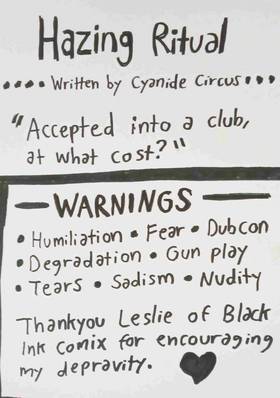 Hazing Ritual
•••• Written by Cyanide Circus •••
"Accepted into a club,
at what cost?"
— WARNINGS —
• Humiliation • Fear • Dubcon
• Degradation • Gun play
• Tears • Sadism • Nudity
Thankyou Leslie of Black
Ink Comix for encouraging
my depravity. ♥